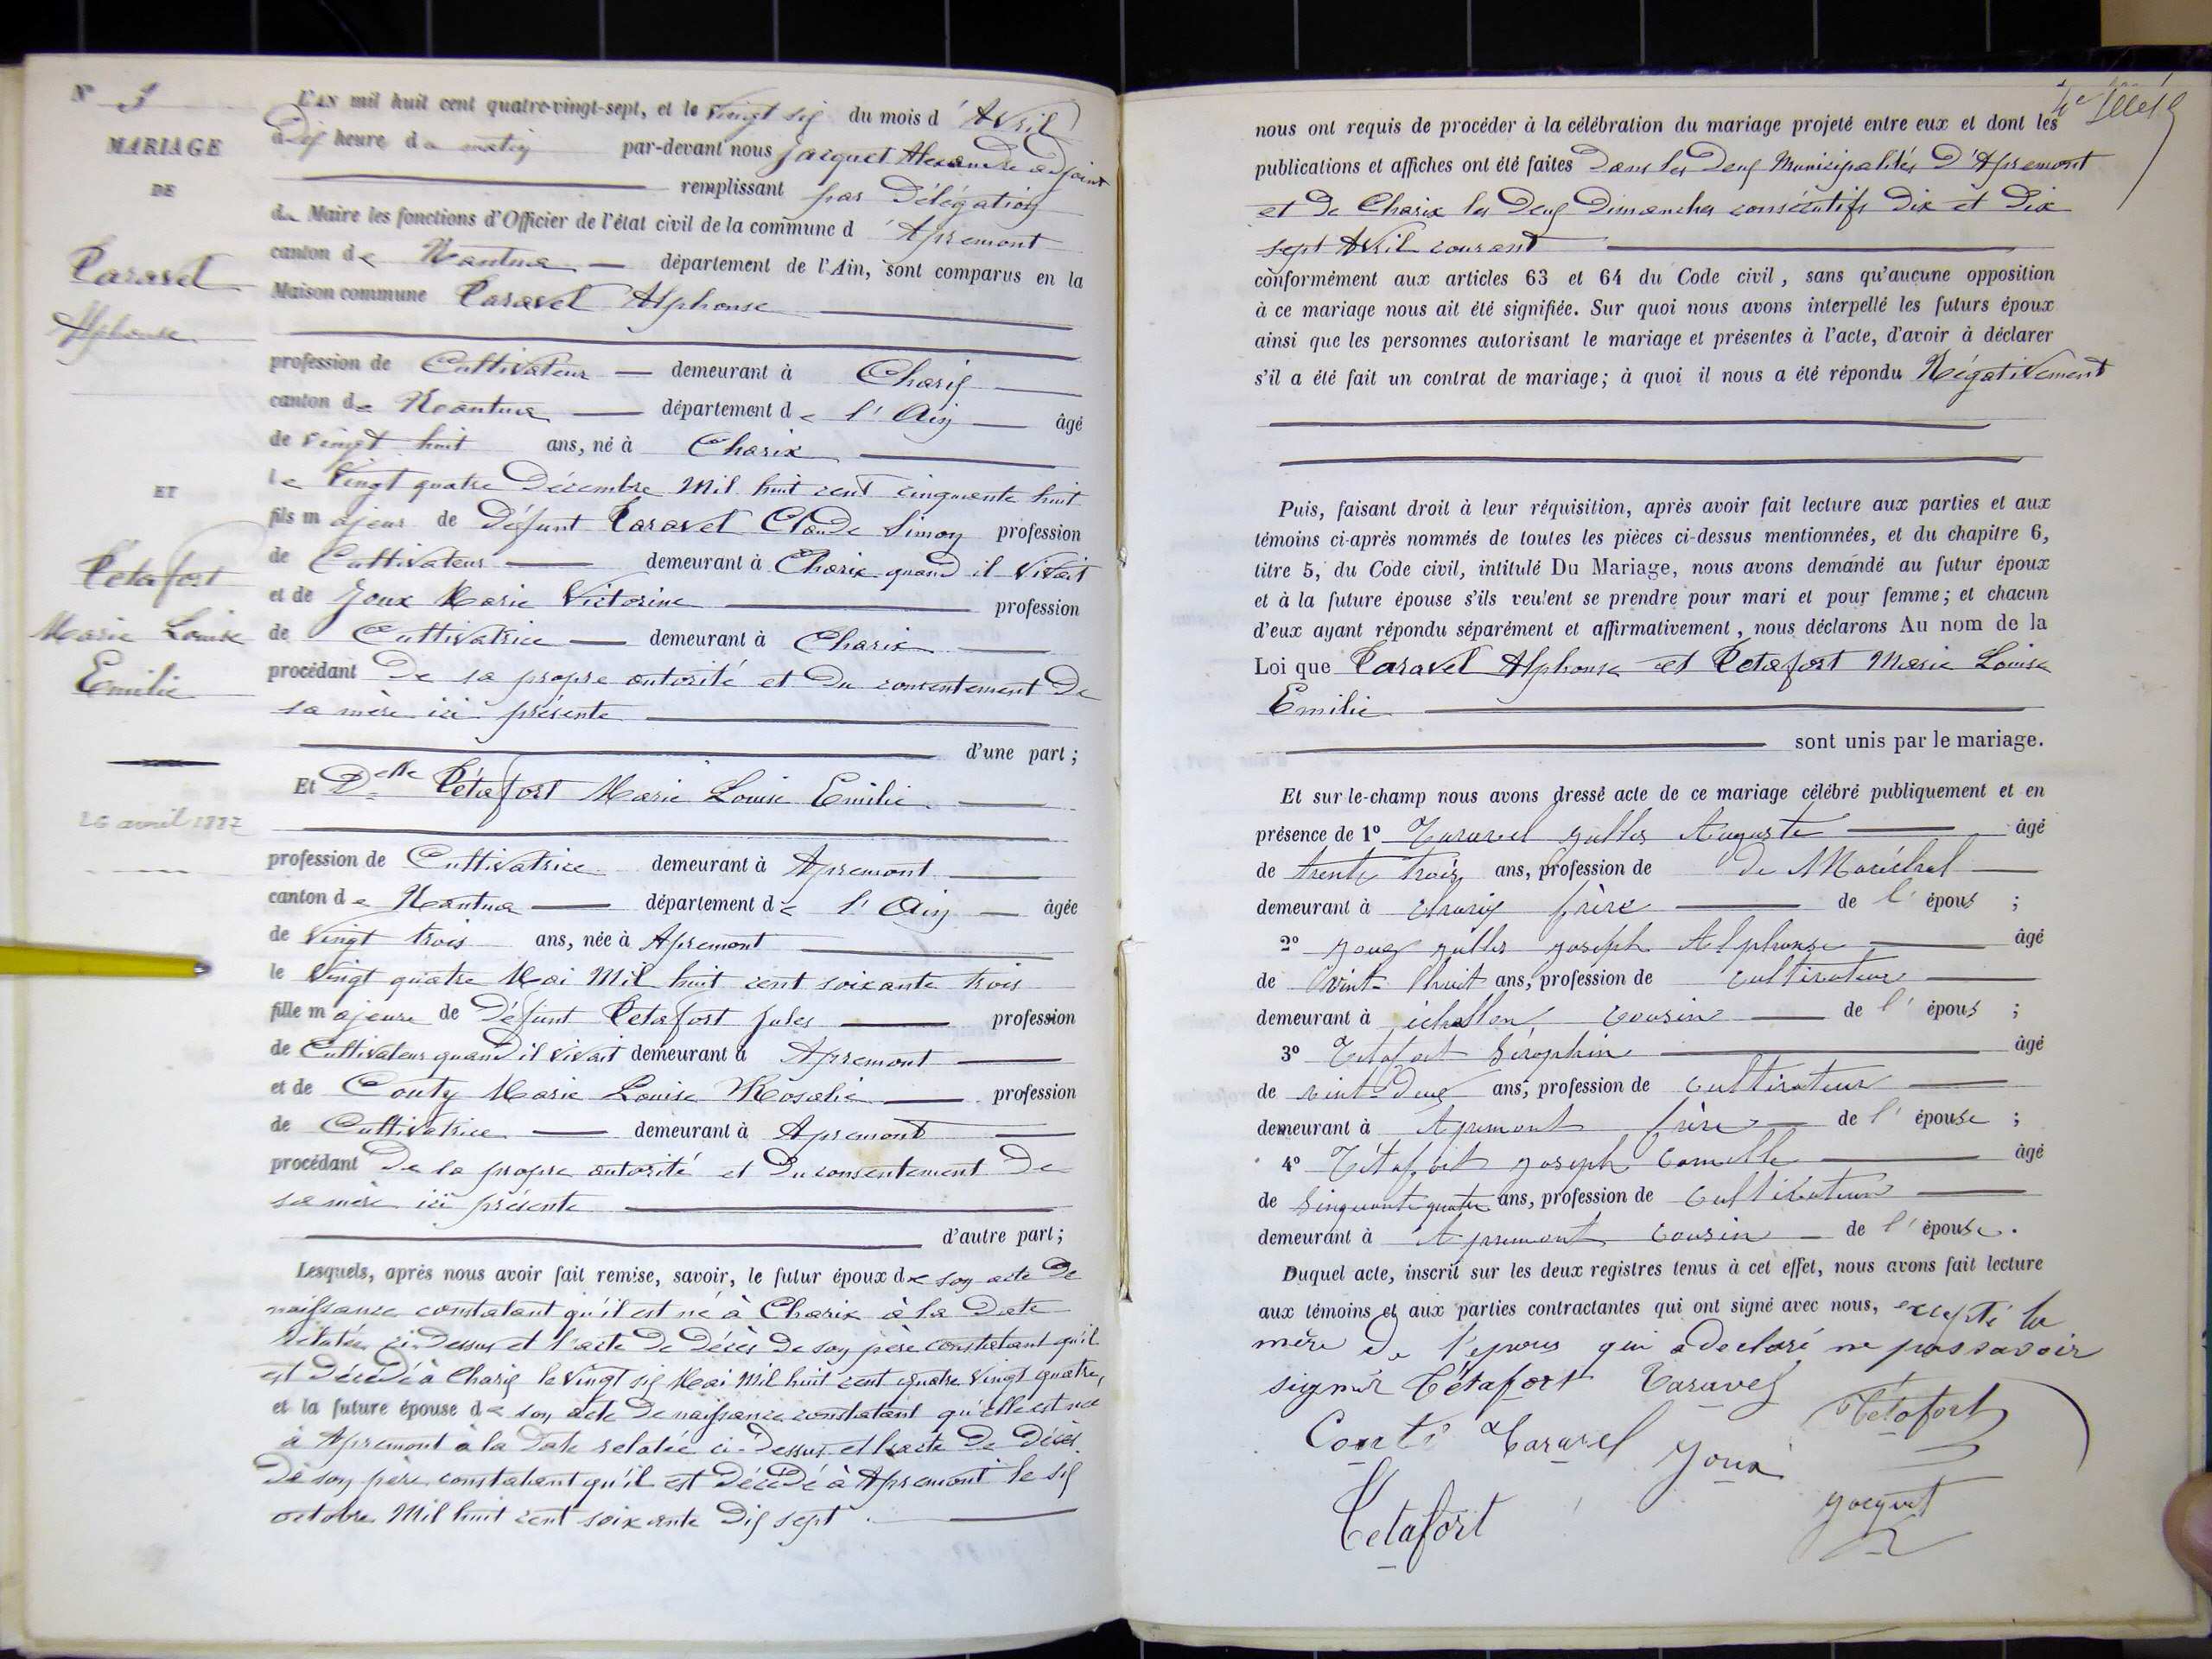 N° 3
MARIAGE
DE
Paravel
Alphonse
ET
Petafort
Marie Louise
Emilie
26 avril 1887
L'AN mil huit cent quatre-vingt-sept, et le vingt six du mois d'Avril
à dix heure du matin par-devant nous Jacquet Alexandre adjoint
remplissant par Délégation
du Maire les fonctions d'Officier de l'état civil de la commune d'Apremont
canton de Nantua département de l'Ain, sont comparus en la
Maison commune Paravel Alphonse
profession de Cultivateur demeurant à Charix
canton de Nantua département de l'Ain âgé
de vingt huit ans, né à Charix
le Vingt quatre Décembre Mil huit cent cinquante huit
fils majeur de Défunt Paravel Claude Simon profession
de Cultivateur demeurant à Charix quand il vivait
et de Joux Marie Victorine profession
de Cultivatrice demeurant à Charix
procédant De sa propre autorité et Du consentement De
sa mère ici présente
d'une part ;
Et Delle Pétafort Marie Louise Emilie
profession de Cultivatrice demeurant à Apremont
canton de Nantua département de l'Ain âgée
de Vingt trois ans, née à Apremont
le Vingt quatre Mai Mil huit cent soixante trois
fille majeure de Défunt Petafort Jules profession
de Cultivateur quand il vivait demeurant à Apremont
et de Conty Marie Louise Rosalie profession
de Cultivatrice demeurant à Apremont
procédant De sa propre autorité et Du consentement De
sa mère ici présente
d'autre part ;
Lesquels, après nous avoir fait remise, savoir, le futur époux de son acte De
naissance constatant qu'il est né à Charix à la Date
relatée ci-Dessus et l'acte De Décès De son père constatant qu'il
est Décédé à Charix le Vingt six Mai Mil huit cent quatre Vingt quatre,
et la future épouse de son acte De naissance constatant qu'elle est née
à Apremont à la Date relatée ci-Dessus et l'acte De Décès
De son père constatant qu'il est Décédé à Apremont le six
octobre Mil huit cent soixante Dix sept
nous ont requis de procéder à la célébration du mariage projeté entre eux et dont les
publications et affiches ont été faites Dans les Deux Municipalités D'Apremont
et De Charix les Deux Dimanches consécutifs Dix et Dix
sept Avril courant
conformément aux articles 63 et 64 du Code civil, sans qu'aucune opposition
à ce mariage nous ait été signifiée. Sur quoi nous avons interpellé les futurs époux
ainsi que les personnes autorisant le mariage et présentes à l'acte, d'avoir à déclarer
s'il a été fait un contrat de mariage; à quoi il nous a été répondu Négativement
Puis, faisant droit à leur réquisition, après avoir fait lecture aux parties et aux
témoins ci-après nommés de toutes les pièces ci-dessus mentionnées, et du chapitre 6,
titre 5, du Code civil, intitulé Du Mariage, nous avons demandé au futur époux
et à la future épouse s'ils veulent se prendre pour mari et pour femme; et chacun
d'eux ayant répondu séparément et affirmativement, nous déclarons Au nom de la
Loi que Paravel Alphonse et Petafort Marie Louise
Emilie
sont unis par le mariage.
Et sur-le-champ nous avons dressé acte de ce mariage célébré publiquement et en
présence de 1° Taravel Auguste âgé
de trente trois ans, profession de de Maréchal
demeurant à Charix frère de l'épous ;
2° Joux Joseph Alphonse âgé
de vint-huit ans, profession de cultivateur
demeurant à échallon cousin de l'épous ;
3° Tétafort Séraphin âgé
de vint-Deux ans, profession de cultivateur
demeurant à Apremont frère de l'épouse ;
4° Tétafort Joseph Camille âgé
de Sinquante quatre ans, profession de Cultivateur
demeurant à Apremont cousin de l'épouse.
Duquel acte, inscrit sur les deux registres tenus à cet effet, nous avons fait lecture
aux témoins et aux parties contractantes qui ont signé avec nous, excepté la
mère de l'epous qui a declaré ne pas savoir
signer Tétafort Taravel Tétafort
Conti Taravel Joux
Tetafort Jacquet